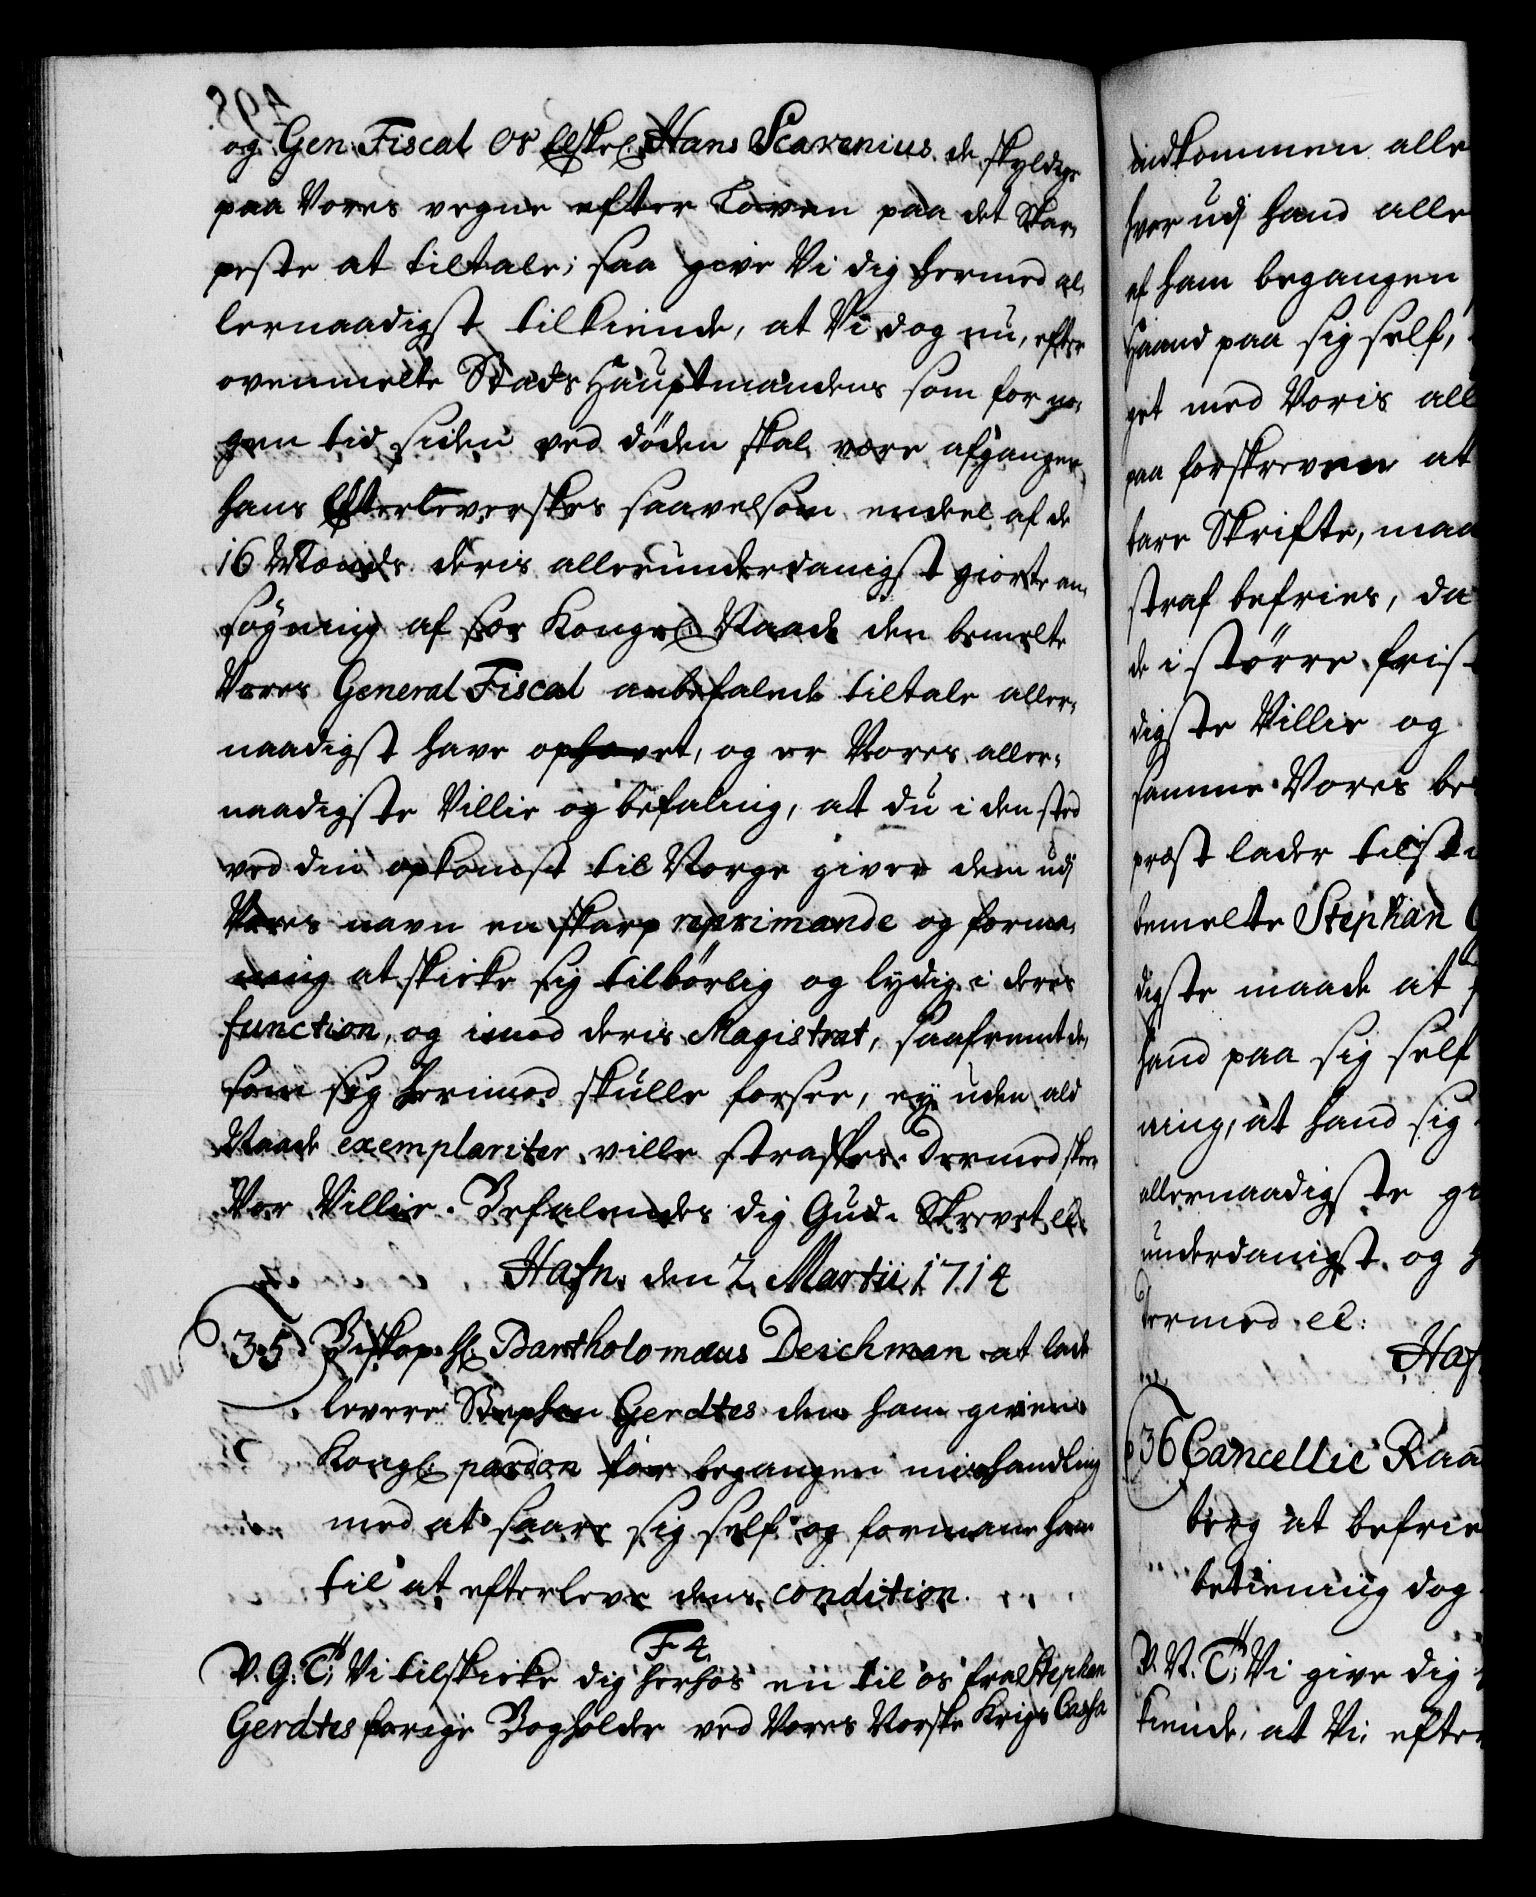 og Gen: Fiscal Os Elskel: Hans Scavenius de skyldige
paa Vores vegne efter Loven paa det skar,
peste at tiltale; saa give Vi dig hermed al,
lernaadigst tilkiende, at Vi dog nu, efter
ovenmelte Stads Hauptmandens som for no,
gen tid siden ved døden skal være afgangen,
hans Efterleverskes saavelsom endeel af de
16 Mænds deris allerunderdanigst giorte an,
søgning af sær Kongel: Naade den bemelte
Vores General Fiscal anbefalede tiltale aller,
naadigst have ophævet, og er Vores aller,
naadigste Villie og befaling, at du i den sted
ved din opkomst til Norge giver dem udj
Vores navn en skarp reprimande og forma,
ning at skicke sig tilbørlig og lydig i deres
function, og imod deris Magistrat, saafremt de,
som sig herimod skulle forsee, ey uden ald
Naade exemplariter ville straffes. Dermed skeer
Vor Villie. Befalendes dig Gud. Skrevet etc.
Hafn. den 2 Martii 1714
35 Biskop Hr. Bartholomæus Deichman at lade
levere Stephan Gerdtes den ham givene
Kongl: pardon for begangen mishandling
med at saare sig self og formane ham
til at efterleve dens condition.
F 4.
V. G. T. Vi tilskicke dig herhos en til os fra Stephan
Gerdtes forige Bogholder ved Vores Norske Krigs Cassa
indkommen alle
hver udj hand alle
af ham begangen
Haand paa sig self,
get med Voris all
paa forskreven at
bare Skrifte, maa
straf befries, da
de i større frist
digste Villie og
samme Vores be
præst lader tilste
bemelte Stephan G
digste maade at
hand paa sig self
ning, at hand sig
allernaadigste gi
underdanigst og h
dermed etc:
Haf
36 Cancellie Raa
berg at befrie
betiening dog
V. N. T. Vi give dig
kiende, at Vi efter